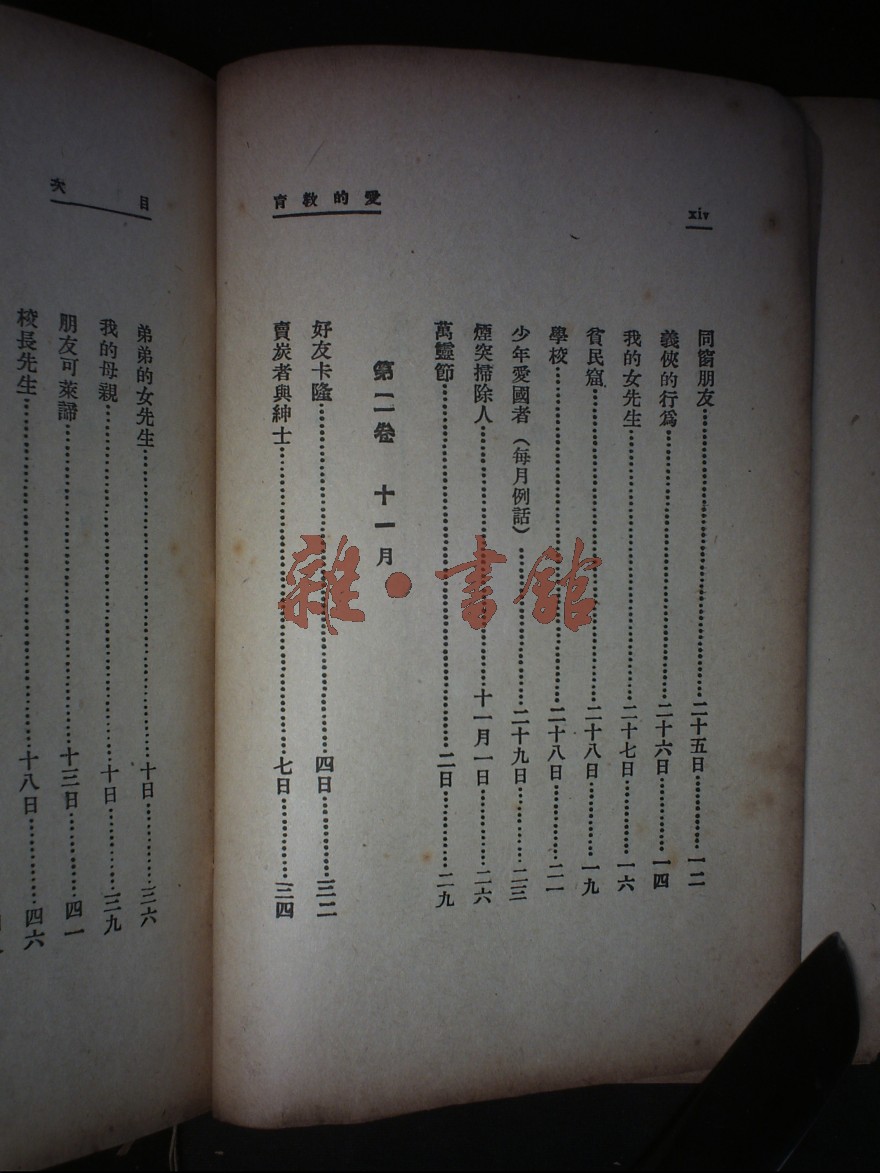 xiv
愛的教育
同窗朋友…………二十五日…………一二
義俠的行爲…………二十六日…………一四
我的女先生…………二十七日…………一六
貧民窟…………二十八日…………一九
學校…………二十八日…………二一
少年愛國者(每月例話)…………二十九日…………二三
煙突掃除人…………十一月一日…………二六
萬靈節…………二日…………二九
第二卷 十一月
好友卡隆…………四日…………三二
賣炭者與紳士…………七日…………三四
目次
弟弟的女先生…………十日…………三六
我的母親…………十日…………三九
朋友可萊諦…………十三日…………四一
校長先生…………十八日…………四六
雜·書館